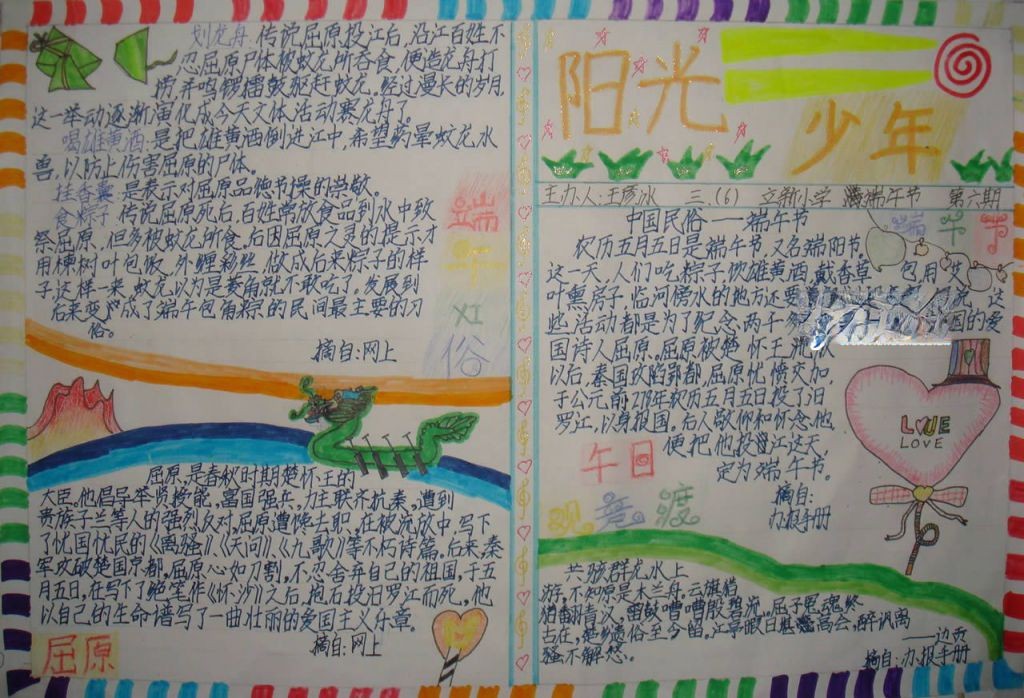 划龙舟:传说屈原投江后,沿江百姓不
忍屈原尸体被蚊龙所吞食,便造龙舟打
捞,并鸣锣擂鼓驱赶蚊龙。经过漫长的岁月,
这一举动逐渐演化成今天文体活动赛龙舟了。
喝雄黄酒:是把雄黄酒倒进江中,希望药晕蚊龙水
兽,以防止伤害屈原的尸体。
挂香囊 是表示对屈原品德节操的崇敬。
食粽子 传说屈原死后,百姓常放食品到水中致
祭屈原,但多被蚊龙所食,后因屈原之灵的提示才
用楝树叶包饭,外缠彩丝,做成后来粽子的样
子这样一来,蚊龙以为是菱角就不敢吃了。发展到
后来变成了端午包角粽的民间最主要的习
俗。
摘自:网上
端
午
习
俗
屈原,是春秋时期楚怀王的
大臣。他倡导举贤授能,富国强兵,力主联齐抗秦,遭到
贵族子兰等人的强烈反对,屈原遭馋去职,在被流放中,写下
了忧国忧民的《离骚》、《天问》、《九歌》等不朽诗篇。后来,秦
军攻破楚国京都,屈原心如刀割,不忍舍弃自己的祖国,于五
月五日,在写下了绝笔作《怀沙》之后,抱石投汨罗江而死,他
以自己的生命谱写了一曲壮丽的爱国主义乐章。
摘自:网上
屈原
阳光
少年
主办人:王彦冰 三.(6) 立新小学 端午节 第六期
中国民俗——端午节
端午节
农历五月五日是端午节,又名端阳节。
这一天,人们吃粽子,饮雄黄酒,戴香草 包,用艾
叶熏房子,临河傍水的地方还要 这
些活动都是为了纪念两千 的爱
国诗人屈原。屈原被楚怀王流放
以后,秦国攻陷郢都,屈原忧愤交加,
于公元前278年农历五月五日投了汨
罗江,以身报国。后人敬仰和怀念他,
便把他投江这天,
定为端午节。
摘自:
办报手册
LOVE
LOVE
午日
观竞渡
共骇群龙水上
游,不知原是木兰舟。云旗猎
猎翻青汉,雷鼓嘈嘈殷碧流。屈子冤魂终
古在,楚乡遗俗至今留。江亭暇日堪高会,醉讽离
骚不解愁。
——边贡
摘自:办报手册